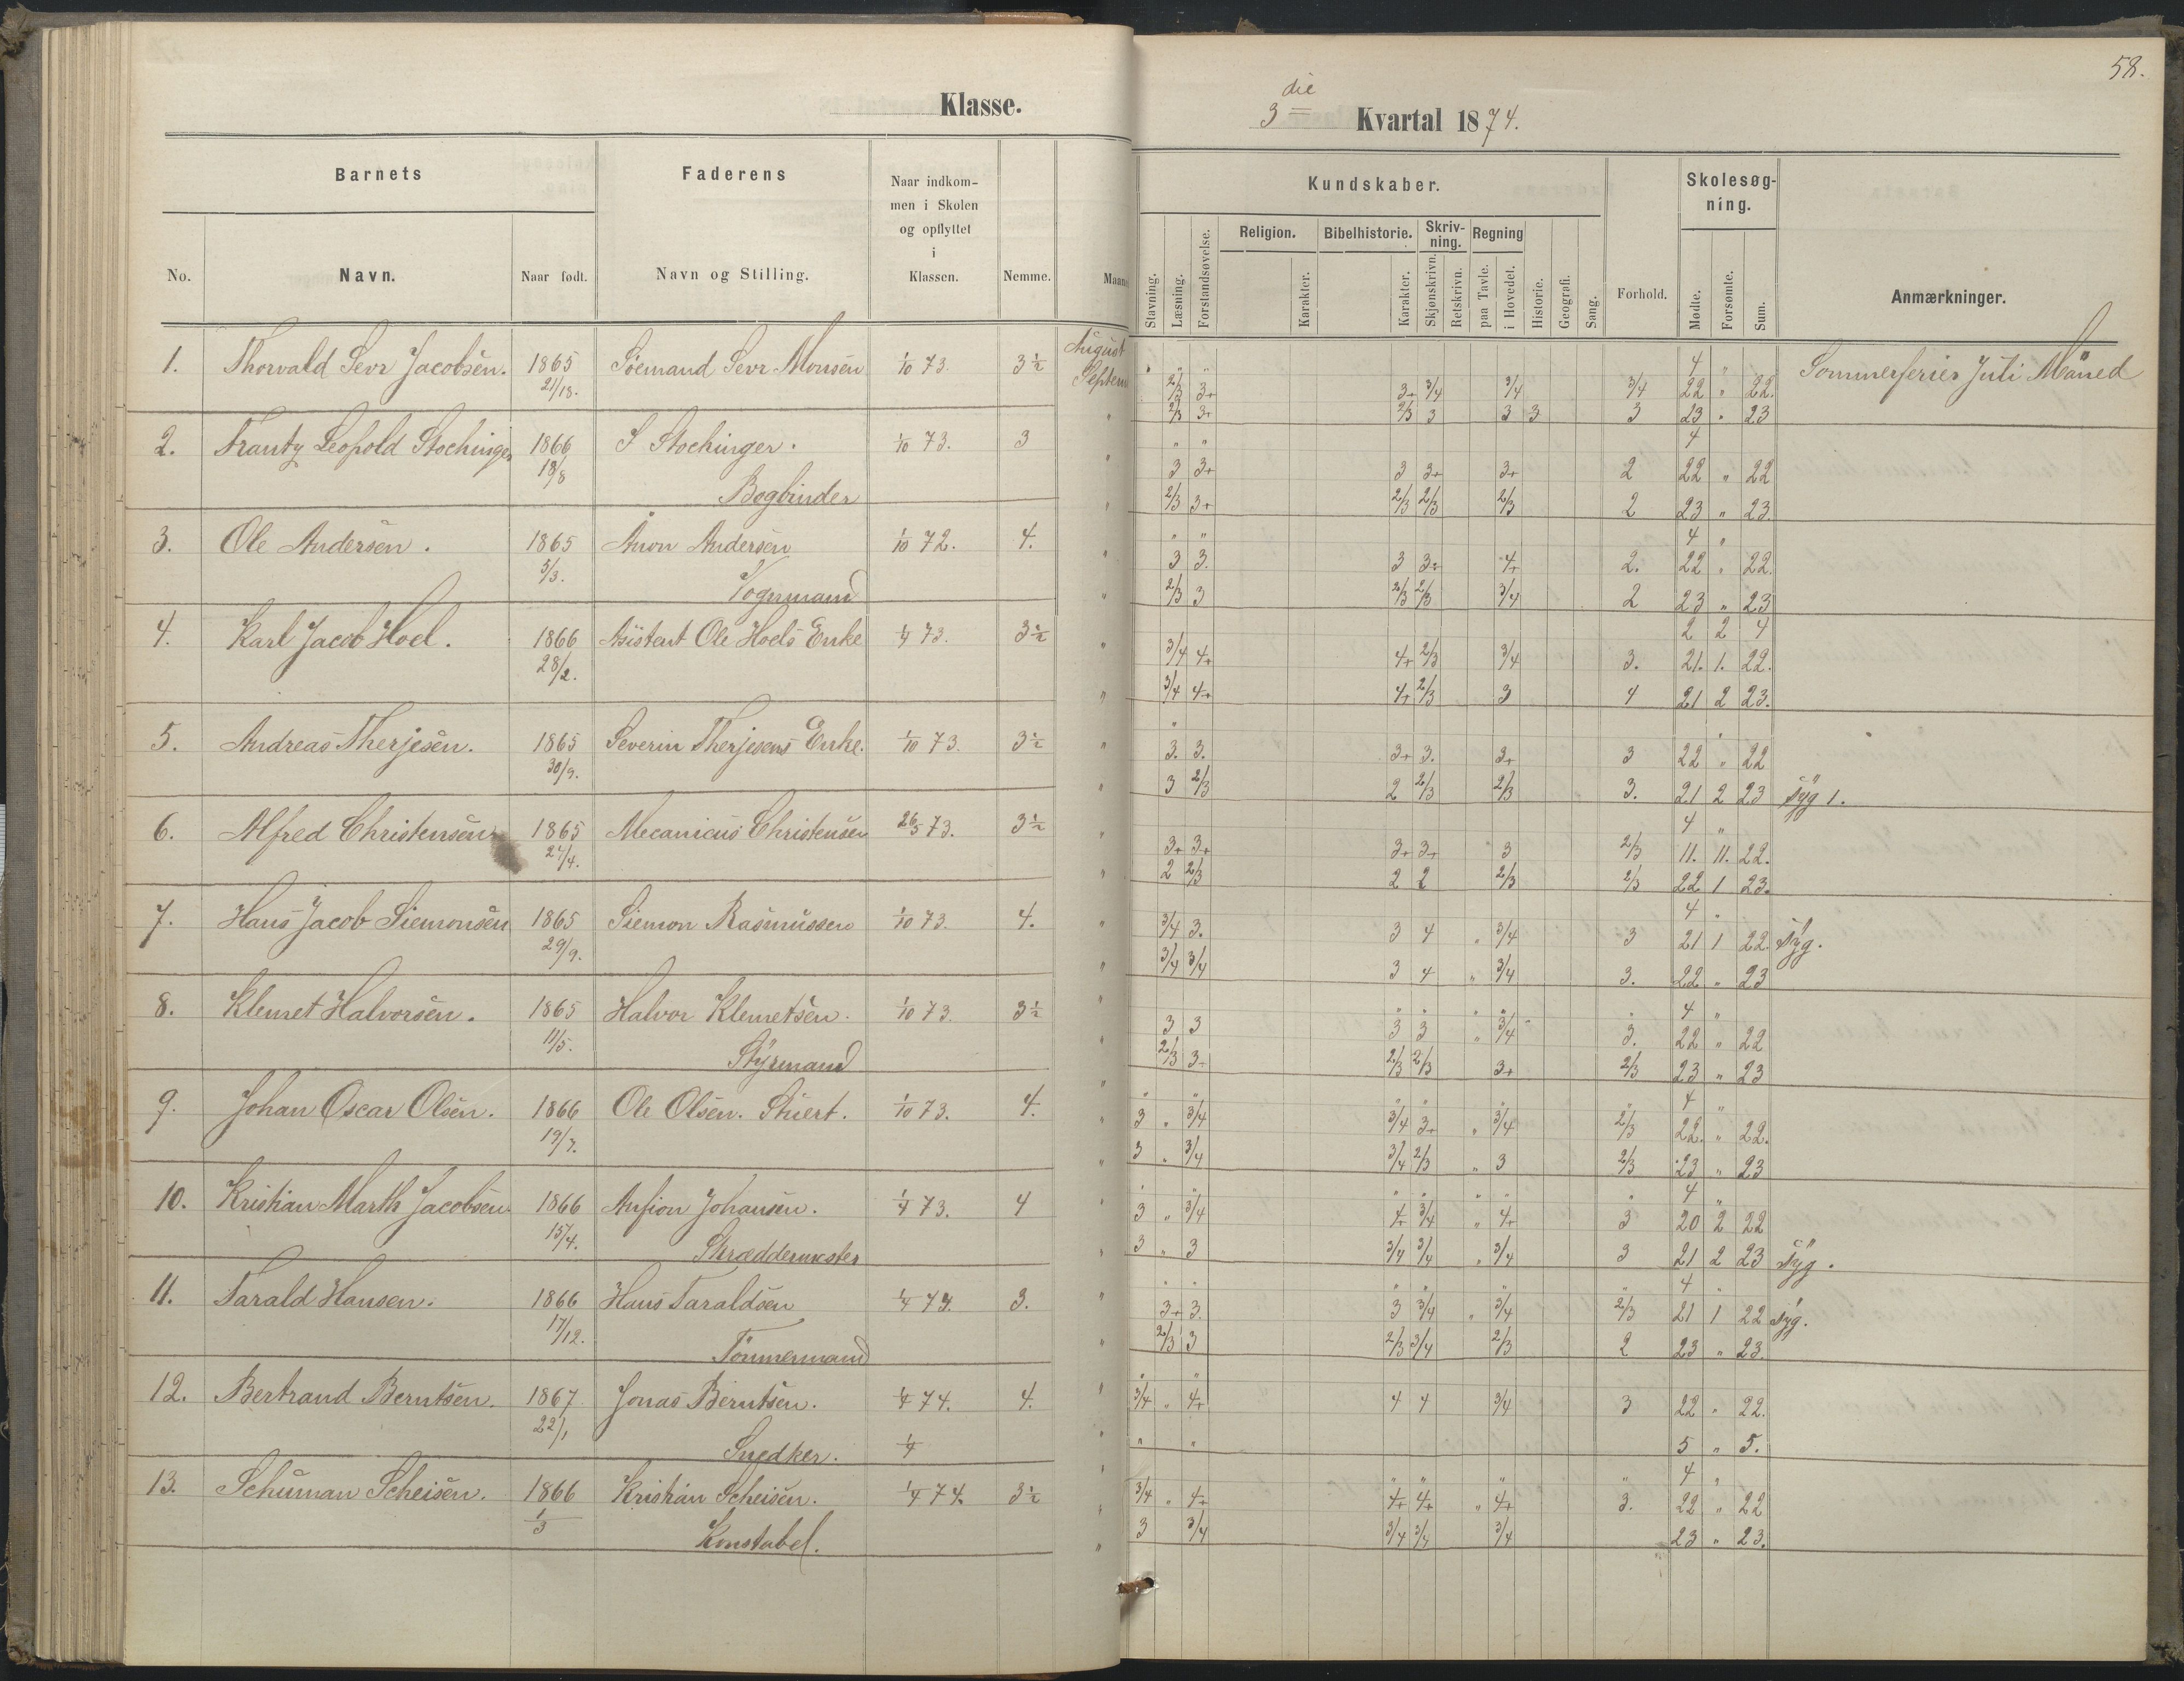 58.
Klasse.
3die Kvartal 1874.
Barnets
Faderens
Naar indkommen i Skolen og opflyttet i Klassen.
Nemme.
Kundskaber.
Skolesøgning.
No.
Navn.
Naar født.
Navn og Stilling.
Stavning.
Læsning.
Forstandsøvelse.
Religion.
Karakter.
Bibelhistorie.
Karakter.
Skrivning.
Skjønskrivn.
Retskrivn.
Regning
paa Tavle.
i Hovedet.
Historie.
Geografi.
Sang.
Forhold.
Mødte.
Forsømte.
Sum.
Anmærkninger.
August
1. Thorvald Sevr Jacobsen. 1865 Söemand Sevr Monsen 1/10 73. 3½ 4 " Sommerferier Juli Måned
Septem 2/3 3+ 3+ 3/4 3/4 3/4 22 " 22.
2/3 3+ 2/3 3 3 3 3 23 " 23
2. Frantz Leopold Stochinger 1866 J Stochinger. 1/10 73. 3 4
18/8 3 3+ 3 3+ 3+ 2 22 " 22
Bogbinder 2/3 3+ 2/3 2/3 2/3 2 23 " 23
3. Ole Andersen. 1865 Anon Andersen 1/10 72. 4. 4 "
5/3. 3 3. 3 3+ 4+ 2. 22 " 22.
Vognmand 2/3 3 2/3 2/3 3/4 2 23 " 23
4. Karl Jacob Hoel. 1866 Asistent Ole Hoels Enke 1/4 73. 3½ 2 2 4
28/2. 3/4 4+ 4+ 2/3 3/4 3. 21. 1. 22.
3/4 4+ 4+ 2/3 3 4 21 2 23.
5. Andreas Therjesen. 1865 Severin Therjesens Enke. 1/10 73. 3½
30/9. 3. 3. 3+ 3. 3+ 3 22 " 22
3 2/3 2 2/3 2/3 3. 21 2 23 syg 1.
6. Alfred Christensen 1865 Mecanicus Christensen 26/5 73. 3½ 4 "
27/4. 3+ 3+ 3+ 3+ 3 2/3 11. 11. 22.
2 2/3 2 2 2/3 2/3 22 1 23.
7. Hans Jacob Siemonsen 1865 Siemon Rasmussen 1/10 73. 4. 4 "
29/9. 3/4 3. 3 4 " 3/4 3 21 1 22. syg.
3/4 3/4 3 4 " 3/4 3. 22 " 23
8. Klemet Halvorsen. 1865 Halvor Klemetsen. 1/10 73. 3½ 4 "
11/5. 3 3 3 3 " 3/4 3. 22 " 22
Styrmand 2/3 3+ 2/3 2/3 3+ 2/3 23 " 23
9. Johan Oscar Olsen. 1866 Ole Olsen. Stuert. 1/10 73. 4. 4 "
19/7. 3 " 3/4 3/4 3+ " 3/4 2/3 22. " 22.
3 " 3/4 3/4 2/3 " 3 2/3 23 " 23
10. Kristian Marth Jacobsen 1866 Anfion Johansen. 1/4 73. 4 4 "
15/4. 3 " 3/4 4+ 3/4 " 4+ 3 20 2 22
Skræddermester 3 " 3 3/4 3/4 " 3/4 3 21 2 23 syg.
11. Tarald Hansen. 1866 Hans Taraldsen 3. 4 "
17/12. 3+ 3. 3 3/4 " 3/4 2/3 21 1 22 syg.
Tömmermand 2/3 3 2/3 3/4 2/3 2 23 " 23.
12. Bertrand Berntsen. 1867 Jonas Berntsen. 1/4 74. 4. 3/4 " 4+ 4 4 3/4 3 22 " 22.
22/1
Snedker. 1/4 " " 5 " 5.
13. Schuman Scheisen. 1866 Kristian Scheisen. 1/4 74. 3½ 4 "
1/3 3/4 " 4+ 4+ 4+ " 4+ 3. 22 " 22
Konstabel. 3 3/4 3/4 3/4 3/4 23 " 23.